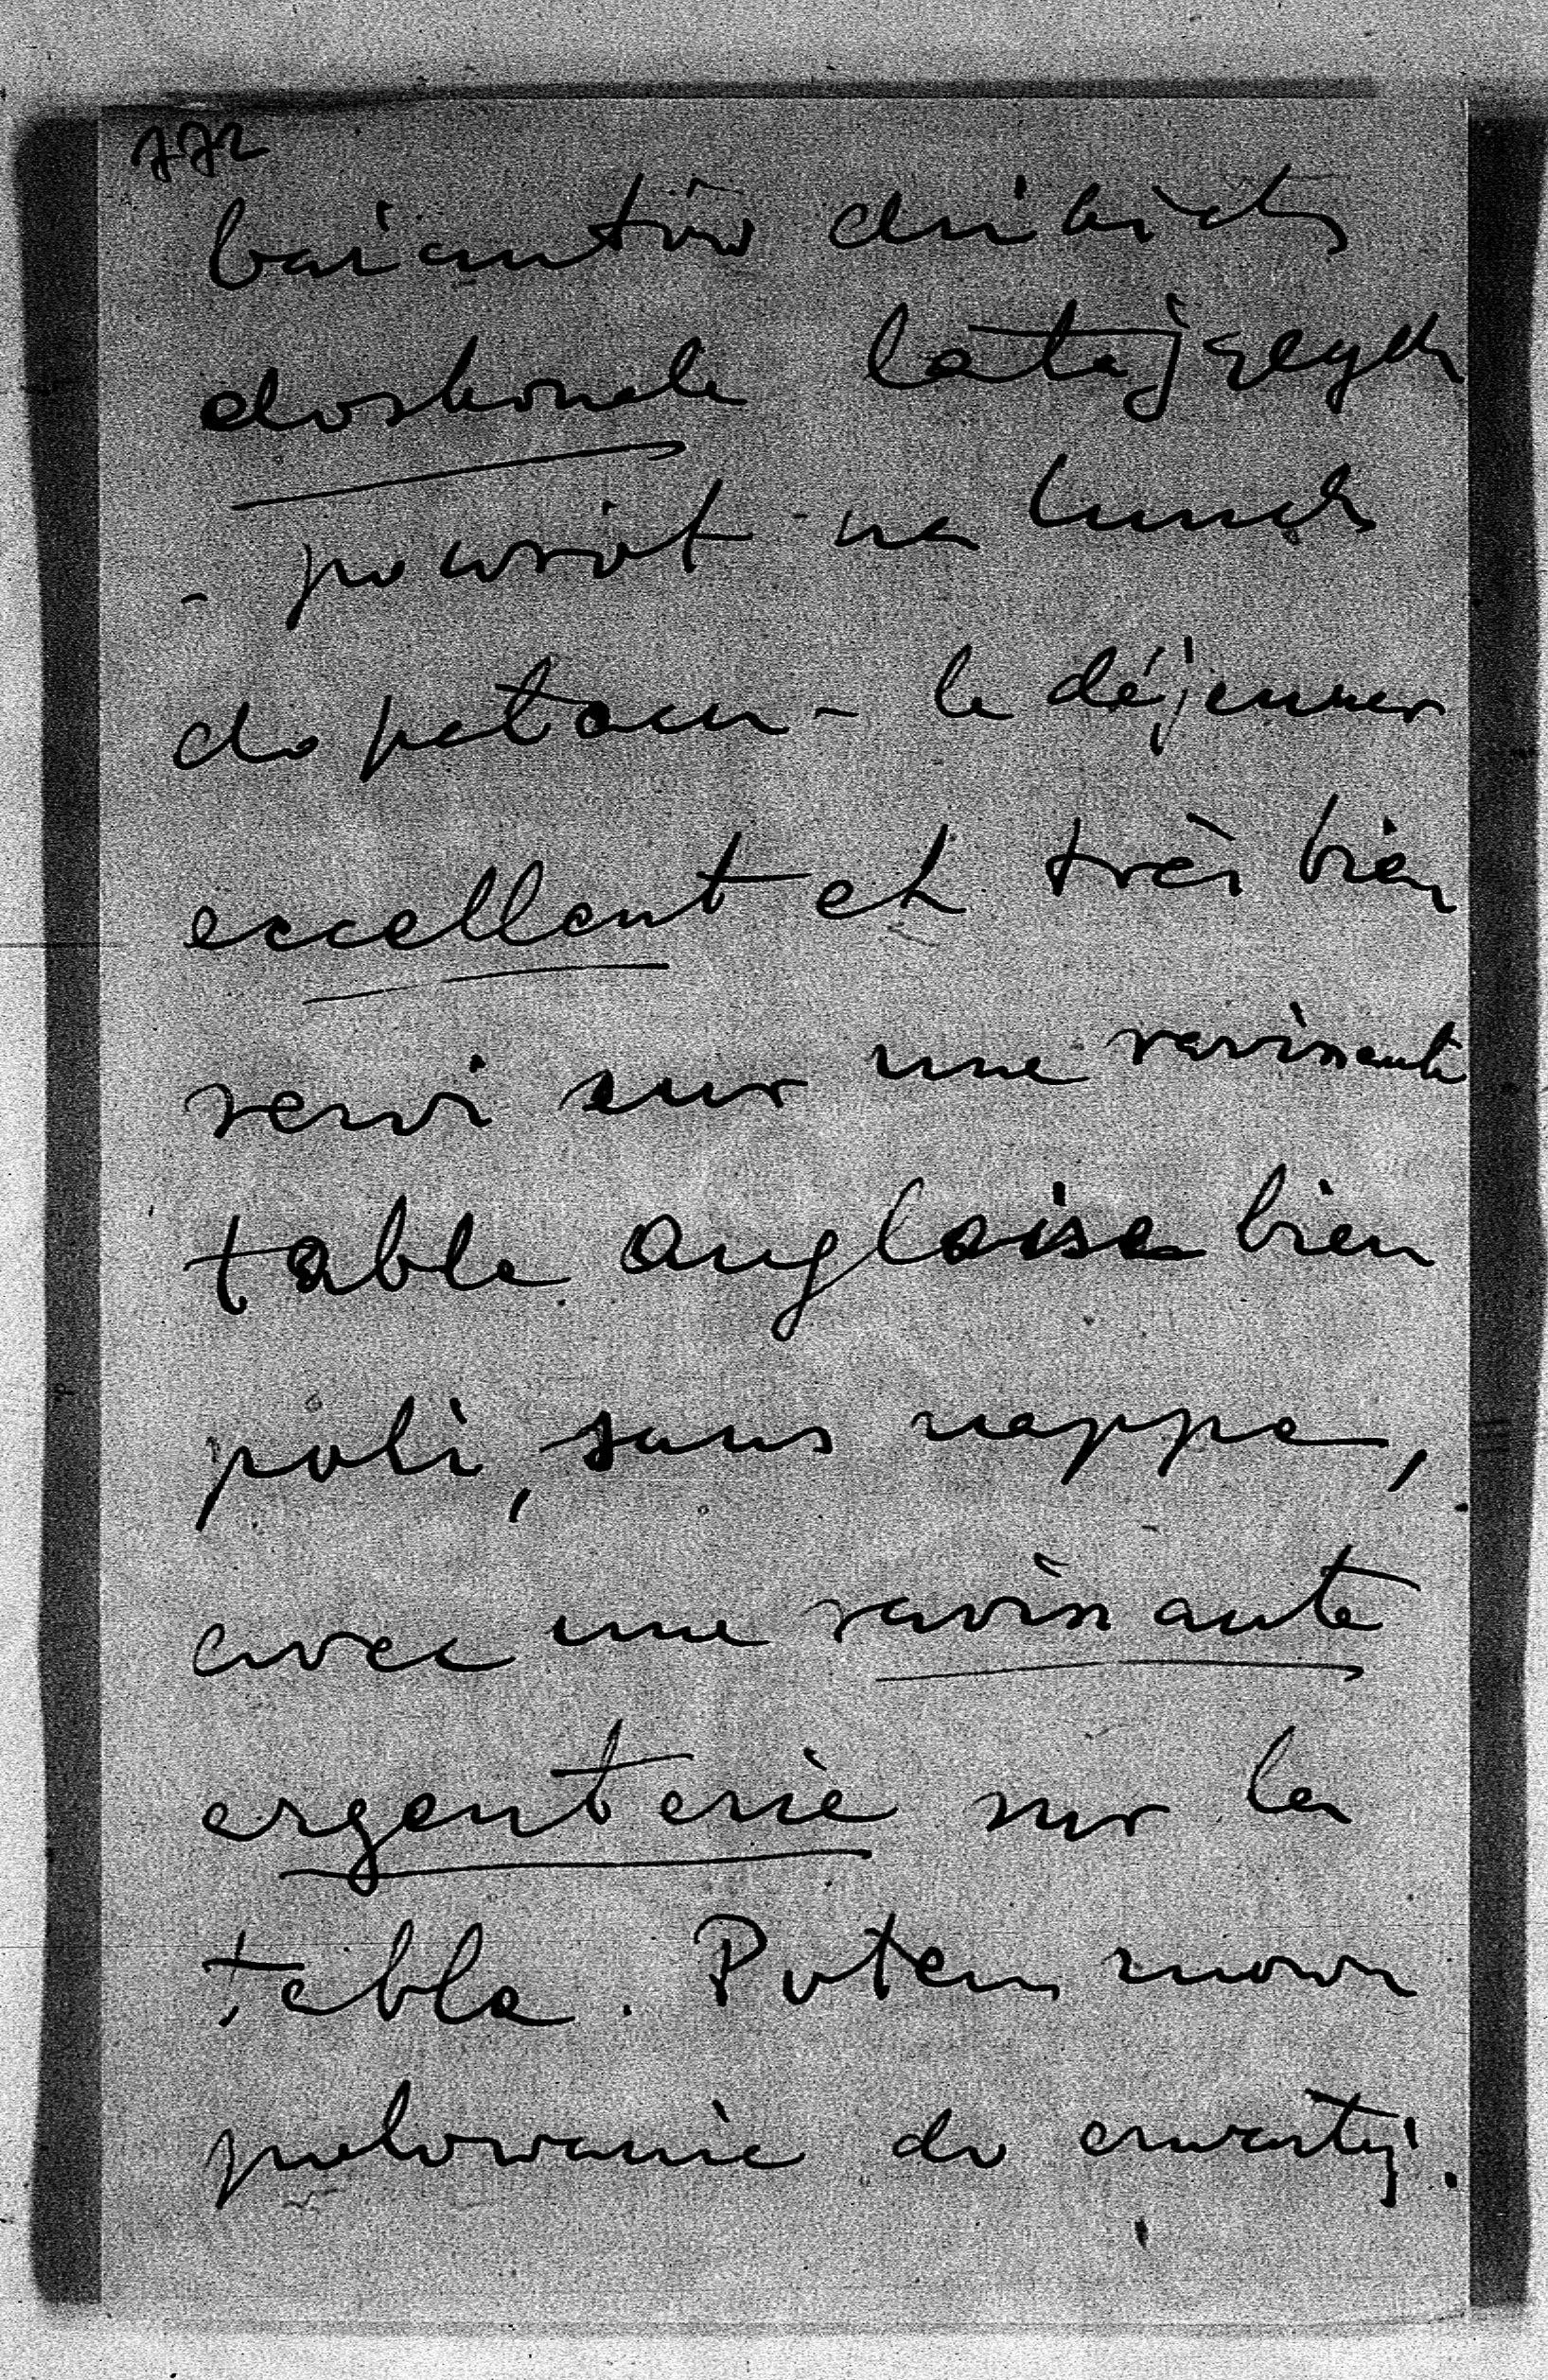 772
bażantów dzikich
doskonale latających
- powrót na lunch
do pałacu - le déjeuner
excellent et très bien
servi sur une ravissante
table anglaise bien
poli, sans nappe,
avec une ravissante
argenterie sur la
table. Potem znowu
polowanie do czwartej.